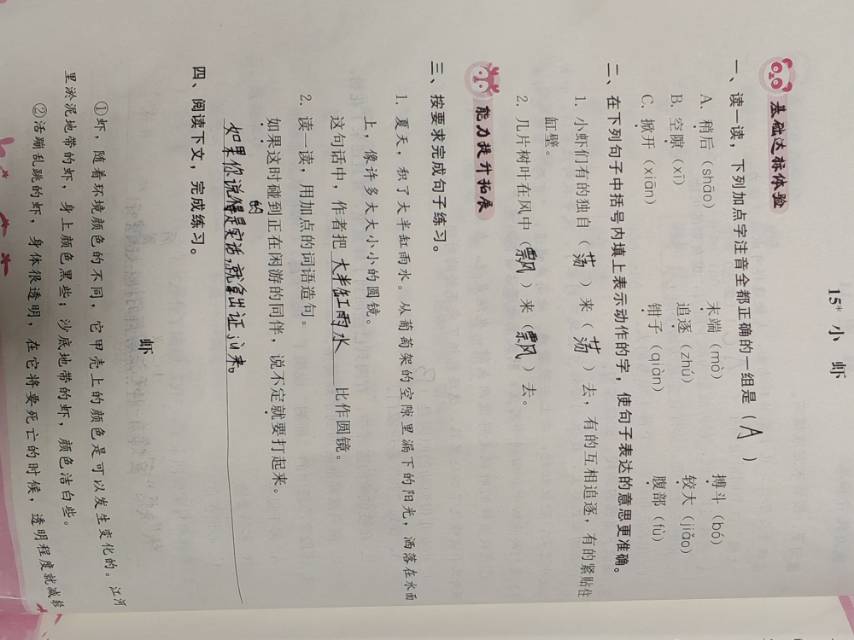 15* 小 虾
基础达标体验
一、读一读，下列加点字注音全都正确的一组是（ A ）
A. 稍后（shāo） 末端（mò） 搏斗（bó）
B. 空隙（xì） 追逐（zhú） 较大（jiǎo）
C. 掀开（xiān） 钳子（qiàn） 腹部（fù）
二、在下列句子中括号内填上表示动作的字，使句子表达的意思更准确。
1. 小虾们有的独自（ 荡 ）来（ 荡 ）去，有的互相追逐，有的紧贴住
缸壁。
2. 几片树叶在风中（ 飘 ）来（ 飘 ）去。
能力提升拓展
三、按要求完成句子练习。
1. 夏天，积了大半缸雨水。从葡萄架的空隙里漏下的阳光，洒落在水面
上，像许多大大小小的圆镜。
这句话中，作者把 大半缸雨水 比作圆镜。
2. 读一读，用加点的词语造句。
如果这时碰到正在闲游的同伴，说不定就要打起来。
如果你说的是实话，就拿出证
四、阅读下文，完成练习。
虾
①虾，随着环境颜色的不同，它甲壳上的颜色是可以发生变化的。江河
里淤泥地带的虾，身上颜色黑些；沙底地带的虾，颜色洁白些。
②活蹦乱跳的虾，身体很透明，在它将要死亡的时候，透明程度就减